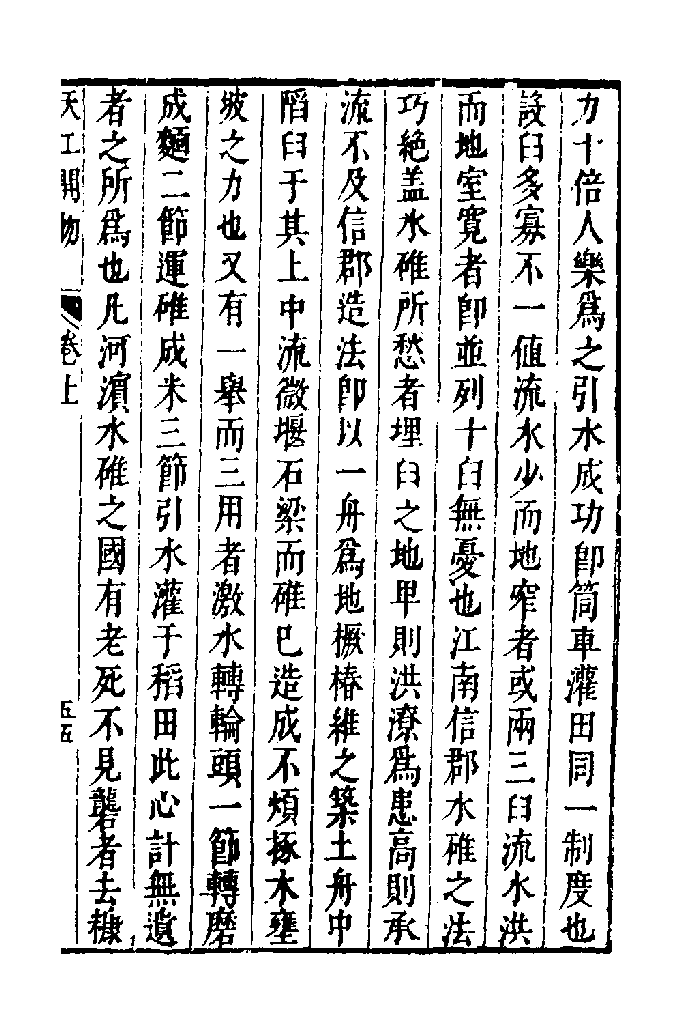 力十倍人樂爲之引水成功卽筒車灌田同一制度也
設臼多寡不一値流水少而地窄者或兩三臼流水洪
而地室寬者卽並列十臼無憂也江南信郡水碓之法
巧絶盖水碓所愁者埋臼之地卑則洪潦爲患高則承
流不及信郡造法卽以一舟爲地橛椿維之築土舟中
陷臼于其上中流微堰石梁而碓已造成不煩椓木壅
坡之力也又有一舉而三用者激水轉輪頭一節轉磨
成麵二節運碓成米三節引水灌于稻田此心計無遺
者之所爲也凡河濵水碓之國有老死不見礱者去糠
天工開物 卷上 五五